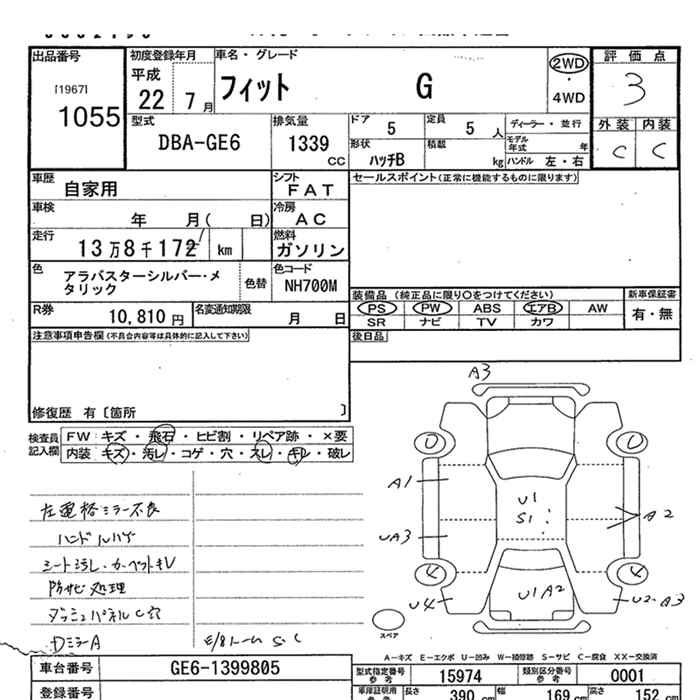 出品番号
[1967]
1055
初度登録年月
平成
22 7月
車名・グレード
フィット G
2WD
4WD
評価点
3
外装 内装
C C
型式
DBA-GE6
排気量
1339
CC
ドア 5
定員 5 人
形状 ハッチB
積載 kg
ディーラー・並行
モデル年式 年
ハンドル 左・右
車歴
自家用
シフト
FAT
車検
年 月( 日)
冷房
AC
走行
13万8千172 km
燃料
ガソリン
色
アラバスターシルバー・メタリック
色替
色コード
NH700M
R券
10,810円
名変通知期限
月 日
セールスポイント(正常に機能するものに限ります)
装備品 (純正品に限り○をつけてください)
PS PW ABS エアB AW
SR ナビ TV カワ
新車保証書
有・無
後日品
注意事項申告欄(不具合内容等は具体的に記入して下さい)
修復歴 有〔箇所 〕
検査員記入欄
FW:キズ・飛石・ヒビ割・リペア跡・×要
内装:キズ・汚レ・コゲ・穴・スレ・キレ・破レ
ハンドルハゲ
防サビ処理
ダッシュパネルC穴
DミラーA
A3
A1
UA3
U4
U1
S1
U1A2
A2
U2・A3
スペア
A-キズ E-エクボ U-凹み W-補修跡 S-サビ C-腐食 XX-交換済
車台番号
GE6-1399805
登録番号
型式指定番号 参考
15974
類別区分番号 参考
0001
車庫証明用 参考
長さ 390 cm
幅 169 cm
高さ 152 cm